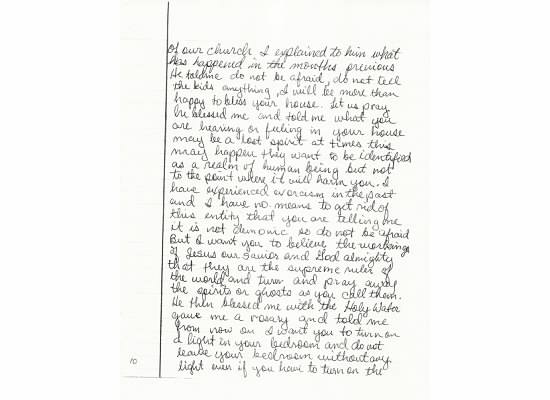 of our church, I explained to him what
has happened in the months previous
He told me do not be afraid, do not tell
the kids anything, I will be more than
happy to bless your house. Let us pray
he blessed me and told me what you
are hearing or feeling in your house
may be a lost spirit at times this
may happen they want to be identified
as a realm of human being but not
to the point where it will harm you. I
have experienced exorcism in the past
and I have no means to get rid of
this entity that you are telling me
it is not demonic so do not be afraid
But I want you to believe the workings
of Jesus our savior and God almighty
that they are the supreme ruler of
the world and turn and pray away
the spirits or ghosts as you call them.
He then blessed me with the Holy Water
gave me a rosary and told me
from now on I want you to turn on
a light in your bedroom and do not
leave your bedroom without any
light even if you have to turn on the
10